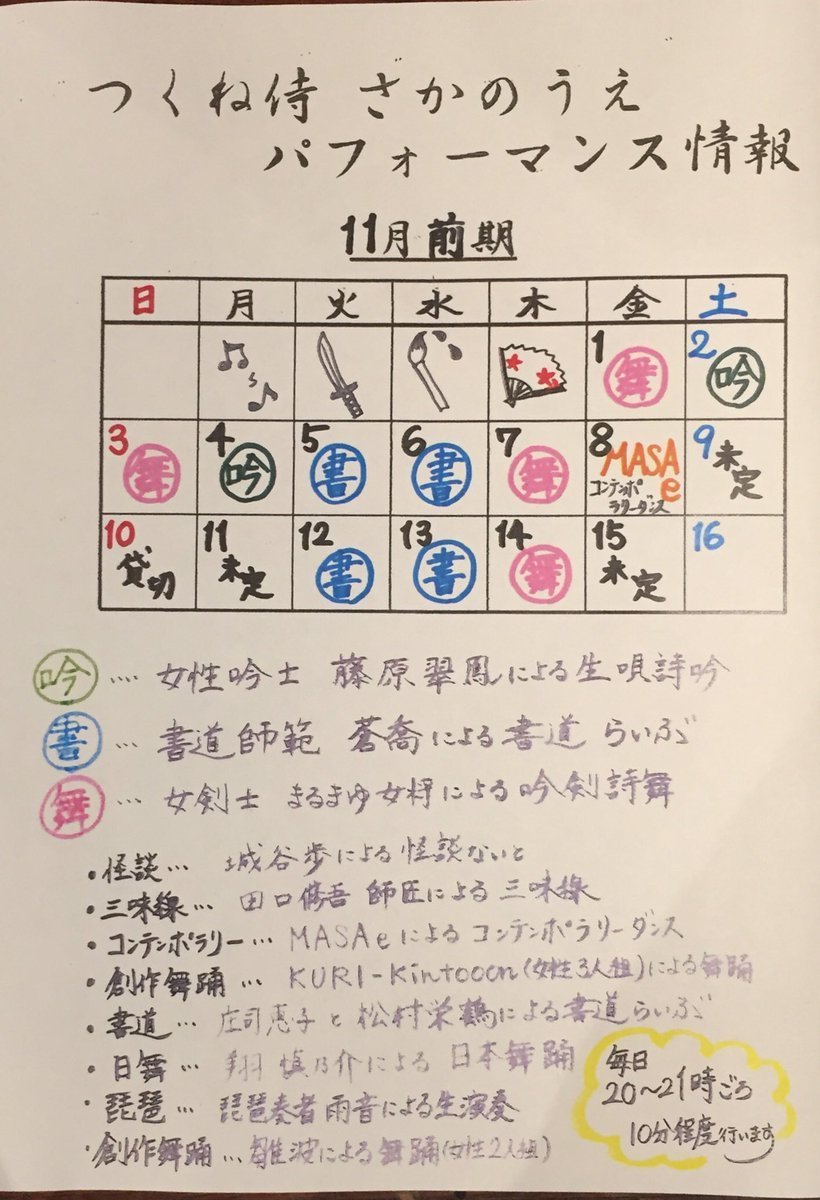 つくね侍 さかのうえ
パフォーマンス情報
11月前期
日 月 火 水 木 金 土
1 舞 2 吟
3 舞 4 吟 5 書 6 書 7 舞 8 MASAe コンテンポラリーダンス 9 未定
10 貸切 11 未定 12 書 13 書 14 舞 15 未定 16
吟 … 女性吟士 藤原翠鳳による生唄詩吟
書 … 書道師範 蒼喬による書道 らいぶ
舞 … 女剣士 まるまゆ女将による吟剣詩舞
・怪談… 城谷歩による怪談ないと
・三味線… 田口脩吾 師匠による三味線
・コンテンポラリー… MASAeによるコンテンポラリーダンス
・創作舞踊… KURI-Kintooon(女性3人組)による舞踊
・書道… 庄司恵子と松村栄鶴による書道らいぶ
・日舞… 翔 慎乃介による 日本舞踊
・琵琶… 琵琶奏者 雨音による生演奏
・創作舞踊…雛波による舞踊(女性2人組)
毎日
20~21時ごろ
10分程度行います